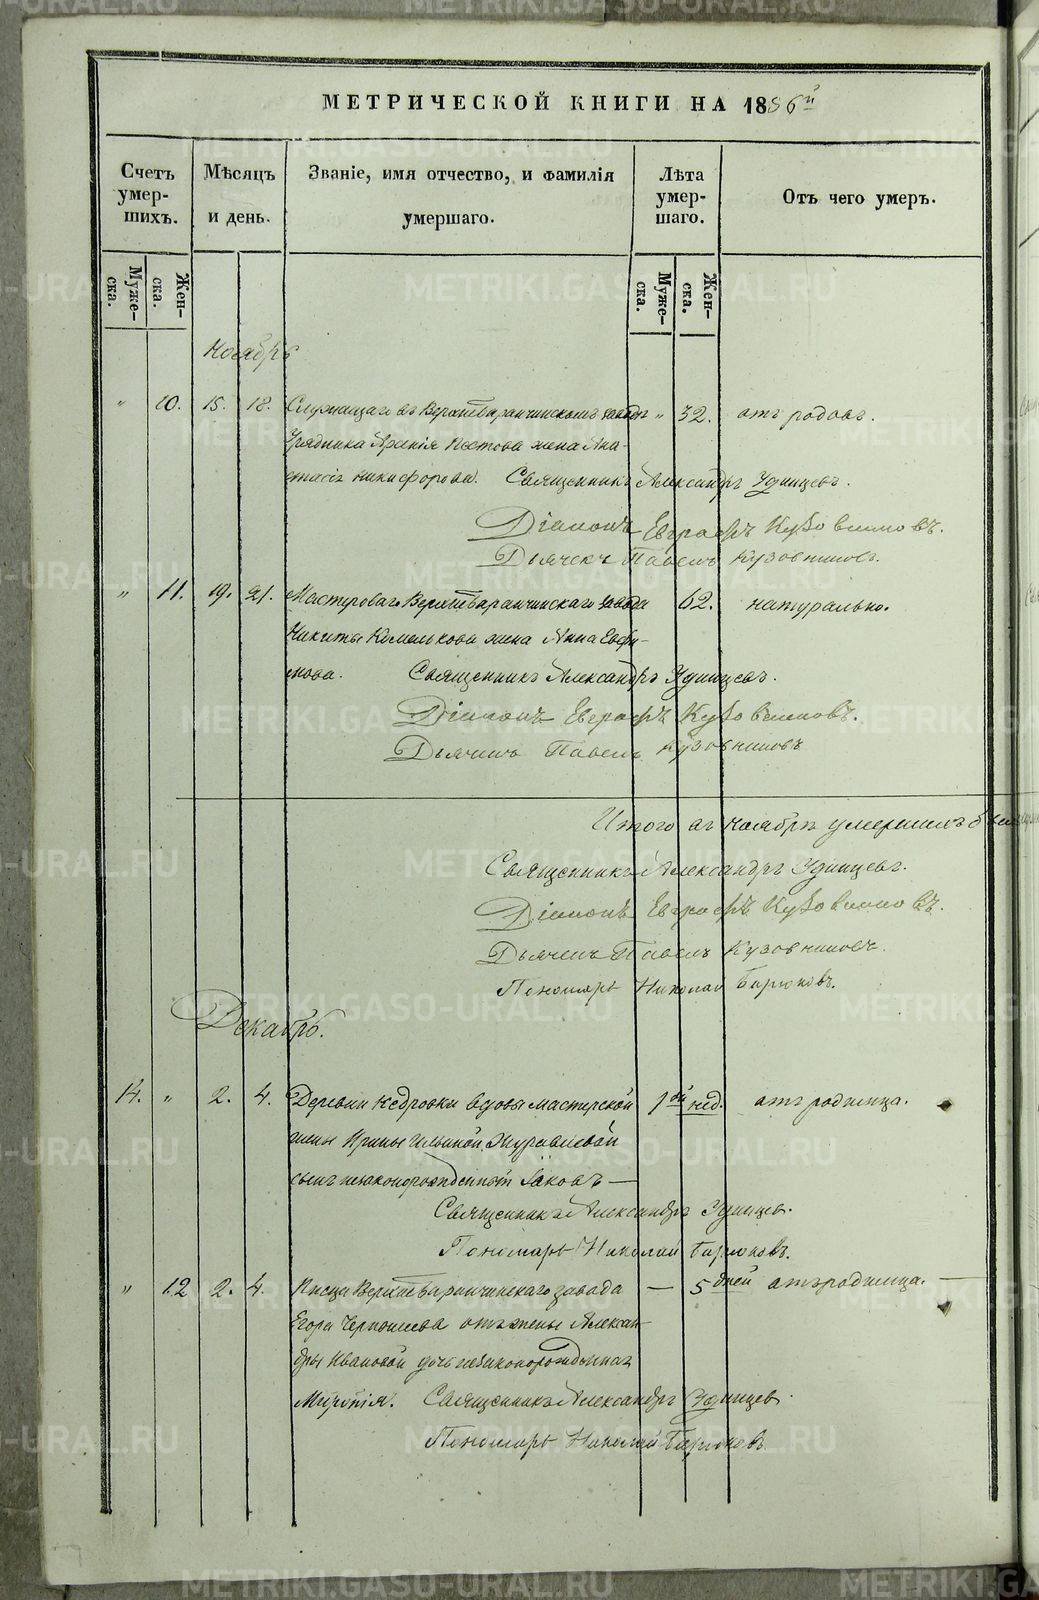 МЕТРИЧЕСКОЙ КНИГИ НА 1856й
Счетъ умер-шихъ.
Мѣсяцъ и день.
Званіе, имя отчество, и фамилія умершаго.
Лѣта умер-шаго.
Отъ чего умеръ.
Муже-ска.
Жен-ска.
Муже-ска.
Жен-ска.
Ноябрь
" 10. 15. 18. Служащаго въ Верхнебаранчинскомъ заводѣ " 32. отъ родовъ.
Урядника Арсенія жена Ана-
стасія Никифорова. Священникъ Александръ Удинцевъ.
Діаконъ Евграфъ Кузовниковъ.
Дьячекъ Павелъ Кузовниковъ.
" 11. 19. 21. Мастероваго Верхнебаранчинскаго завода 62. натурально.
Никиты жена Анна Евфи-
мова. Священникъ Александръ Удинцевъ.
Діаконъ Евграфъ Кузовниковъ.
Дьячекъ Павелъ Кузовниковъ
Итого въ Ноябрѣ умершихъ
Священникъ Александръ Удинцевъ.
Діаконъ Евграфъ Кузовниковъ.
Дьячекъ Павелъ Кузовниковъ.
Пономарь Николай Бирюковъ.
Декабрь.
14. " 2. 4. Деревни Кедровки вдовы мастерской 1ой нед. отъ родимца.
жены Ирины Ильиной Журавлевой
сынъ незаконорожденный Іаковъ —
Священникъ Александръ Удинцевъ.
Пономарь Николай Бирюковъ.
" 12 2. 4. Писца Верхнебаранчинскаго завода — 5 дней отъ родимца. —
Егора отъ жены Алексан-
дры Ивановой дочь незаконорожденная
Мѵропія. Священникъ Александръ Удинцевъ.
Пономарь Николай Бирюковъ
METRIKI.GASO-URAL.RU